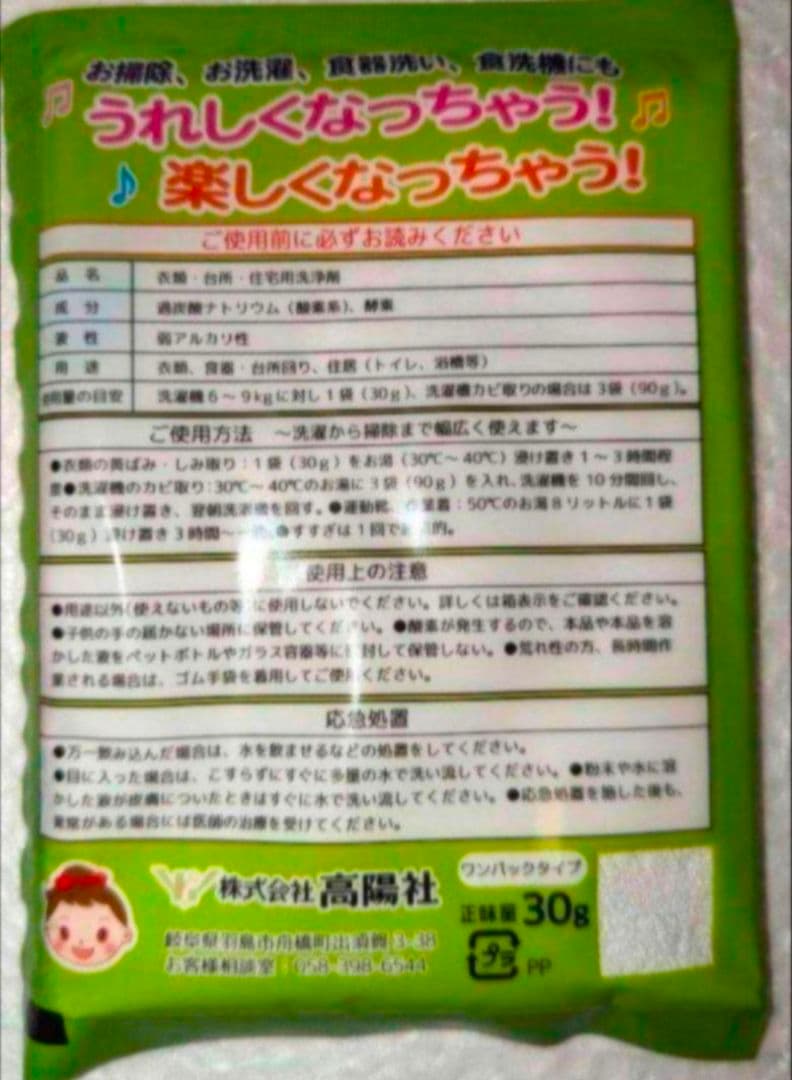 お掃除、お洗濯、食器洗い、食洗機にも
うれしくなっちゃう!
楽しくなっちゃう!
ご使用前に必ずお読みください
品 名 衣類・台所・住宅用洗浄剤
成 分 過炭酸ナトリウム（酸素系）、酵素
液 性 弱アルカリ性
用 途 衣類、食器・台所回り、住居（トイレ、浴槽等）
使用量の目安 洗濯機6～9kgに対し1袋（30g）、洗濯槽カビ取りの場合は3袋（90g）。
ご使用方法 ～洗濯から掃除まで幅広く使えます～
●衣類の黄ばみ・しみ取り：1袋（30g）をお湯（30℃～40℃）浸け置き1～3時間程
度●洗濯機のカビ取り：30℃～40℃のお湯に3袋（90g）を入れ、洗濯機を10分間回し、
そのまま浸け置き、翌朝洗濯機を回す。●運動靴、作業着：50℃のお湯8リットルに1袋
（30g）浸け置き3時間～ ●すすぎは1回で 的。
使用上の注意
●用途以外（使えないもの等）に使用しないでください。詳しくは箱表示をご確認ください。
●子供の手の届かない場所に保管してください。●酸素が発生するので、本品や本品を溶
かした液をペットボトルやガラス容器等に密封して保管しない。●荒れ性の方、長時間作
業される場合は、ゴム手袋を着用してご使用ください。
応急処置
●万一飲み込んだ場合は、水を飲ませるなどの処置をしてください。
●目に入った場合は、こすらずにすぐに多量の水で洗い流してください。●粉末や水に溶
かした液が皮膚についたときはすぐに水で洗い流してください。●応急処置を施した後も、
異常がある場合には医師の治療を受けてください。
株式会社 高陽社
岐阜県羽島市舟橋町出須賀 3-38
お客様相談室：058-398-6544
ワンパックタイプ
正味量 30g
プラ PP